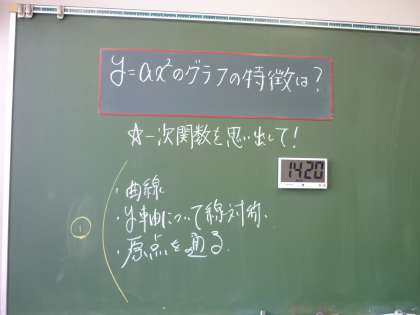 y=ax²のグラフの特徴は?
☆一次関数を思い出して!
14:20
・曲線
・y軸について線対称.
①
・原点を通る.